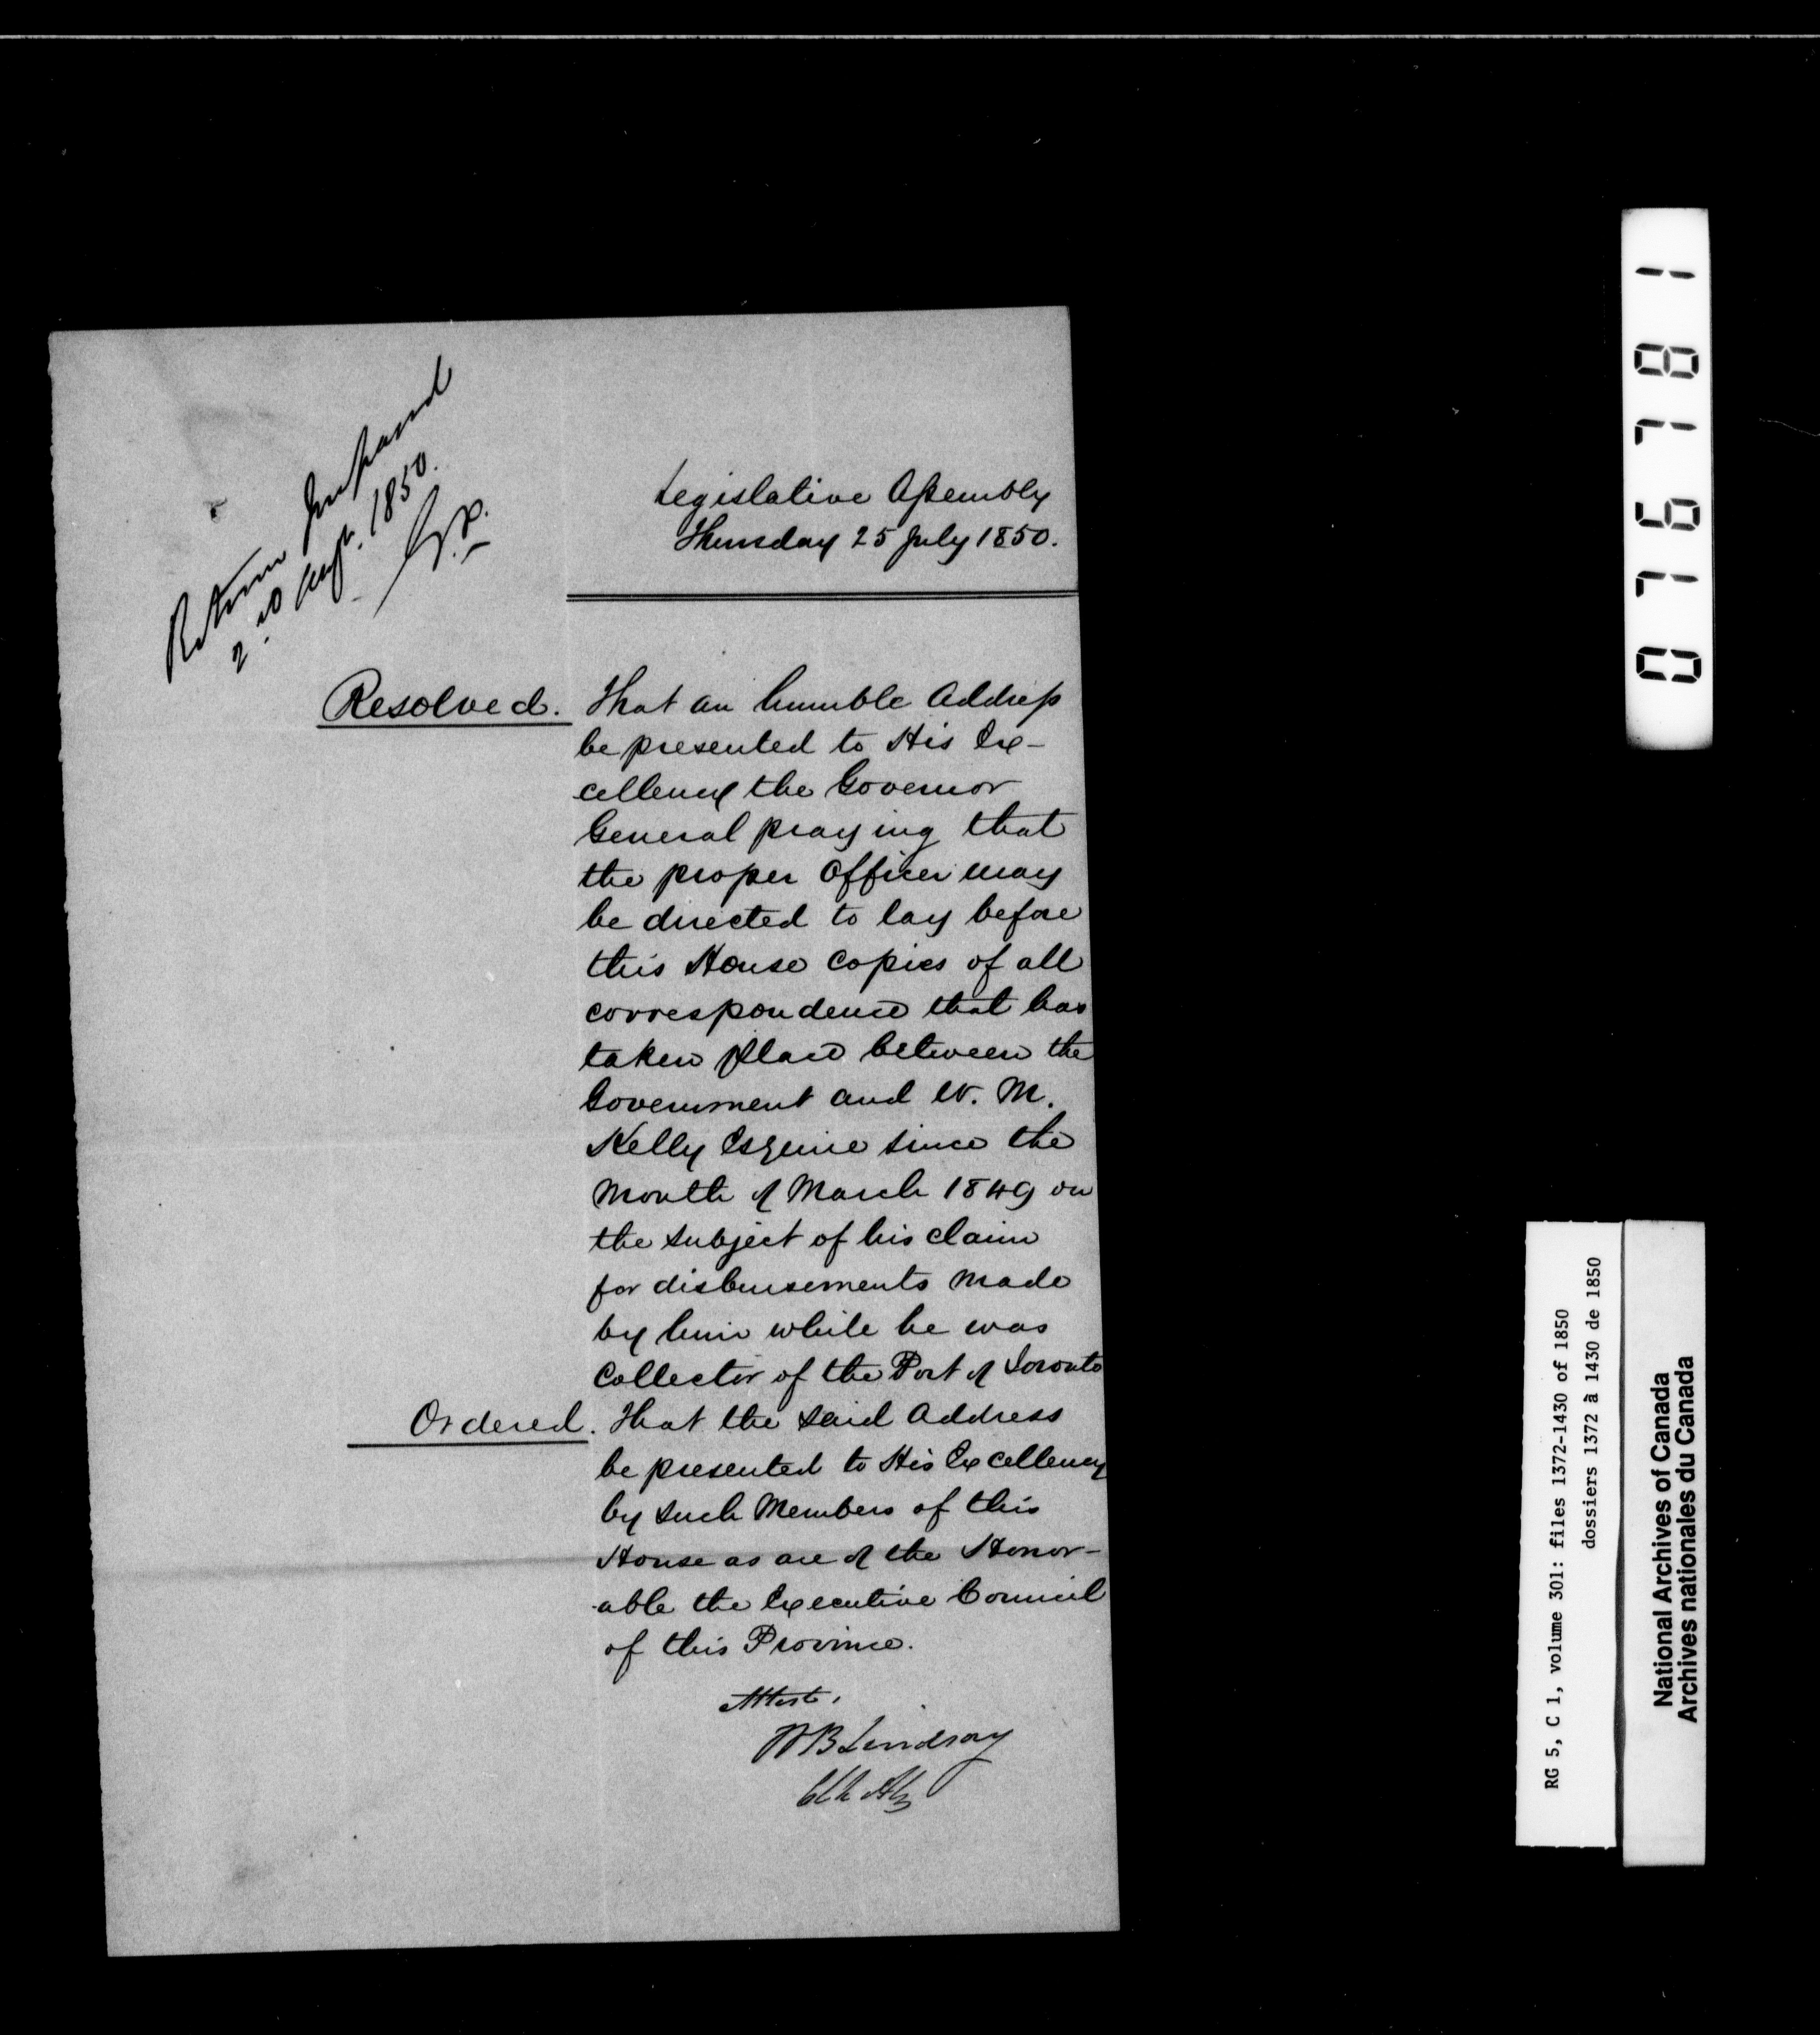 Return
2nd Augt. 1850.
Legislative Assembly
Thursday 25 July 1850.
Resolved. That an humble Address
be presented to His Ex-
cellency the Governor
General praying that
the proper Officer may
be directed to lay before
this House copies of all
correspondence that has
taken place between the
Government and W. M.
Kelly Esquire since the
Month of March 1849 on
the subject of his claim
for disbursements made
by him while he was
Collector of the Port of Toronto
Ordered. That the said Address
be presented to His Excellency
by such Members of this
House as are of the Honor-
able the Executive Council
of this Province.
Attest,
WB Lindsay
Clk Assy
076781
RG 5, C 1, volume 301: files 1372-1430 of 1850
dossiers 1372 à 1430 de 1850
National Archives of Canada
Archives nationales du Canada